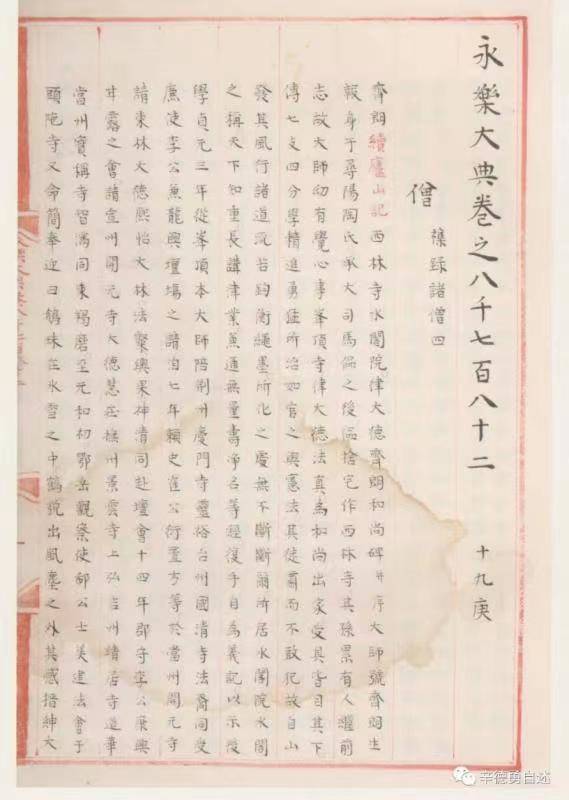 永樂大典卷之八千七百八十二 十九庚
僧 襍錄諸僧四
齊朗續廬山記西林寺水閣院律大德齊朗和尚碑并序大師號齊朗生
報身于尋陽陶氏承大司馬侃之後侃捨宅作西林寺其孫累有人繼前
志故大師幼有覺心事峯頂寺律大德法真為和尚出家受具皆目其下
傳七支四分學精進勇猛所治如官之輿憲法其徒肅而不敢犯故自山
發其風行諸道況吉鈞衡繩墨所化之處無不斷斷爾所居水閣院水閣
之稱天下知重長講律業兼通無量壽淨名等經復手自為義記以示後
學貞元三年從峯頂本大師陪荆州慶門寺靈裕台州國清寺法裔同受
廉使李公兼龍興壇場之請洎七年賴史崔公衍置方等於當州開元寺
請東林大德熙怡大林法粲興果神清同赴壇會十四年郡守李公康興
甘露之會請宣州開元寺大德慧莊撫州景雲寺上弘吉州靖居寺道華
當州寶稱寺智滿同東羯磨至元和初鄂岳觀察使郗公士美建法會于
頭陁寺又命簡奉迎曰鵝珠在氷雪之中鶴貌出風塵之外其感搢紳大
辛德勇自述